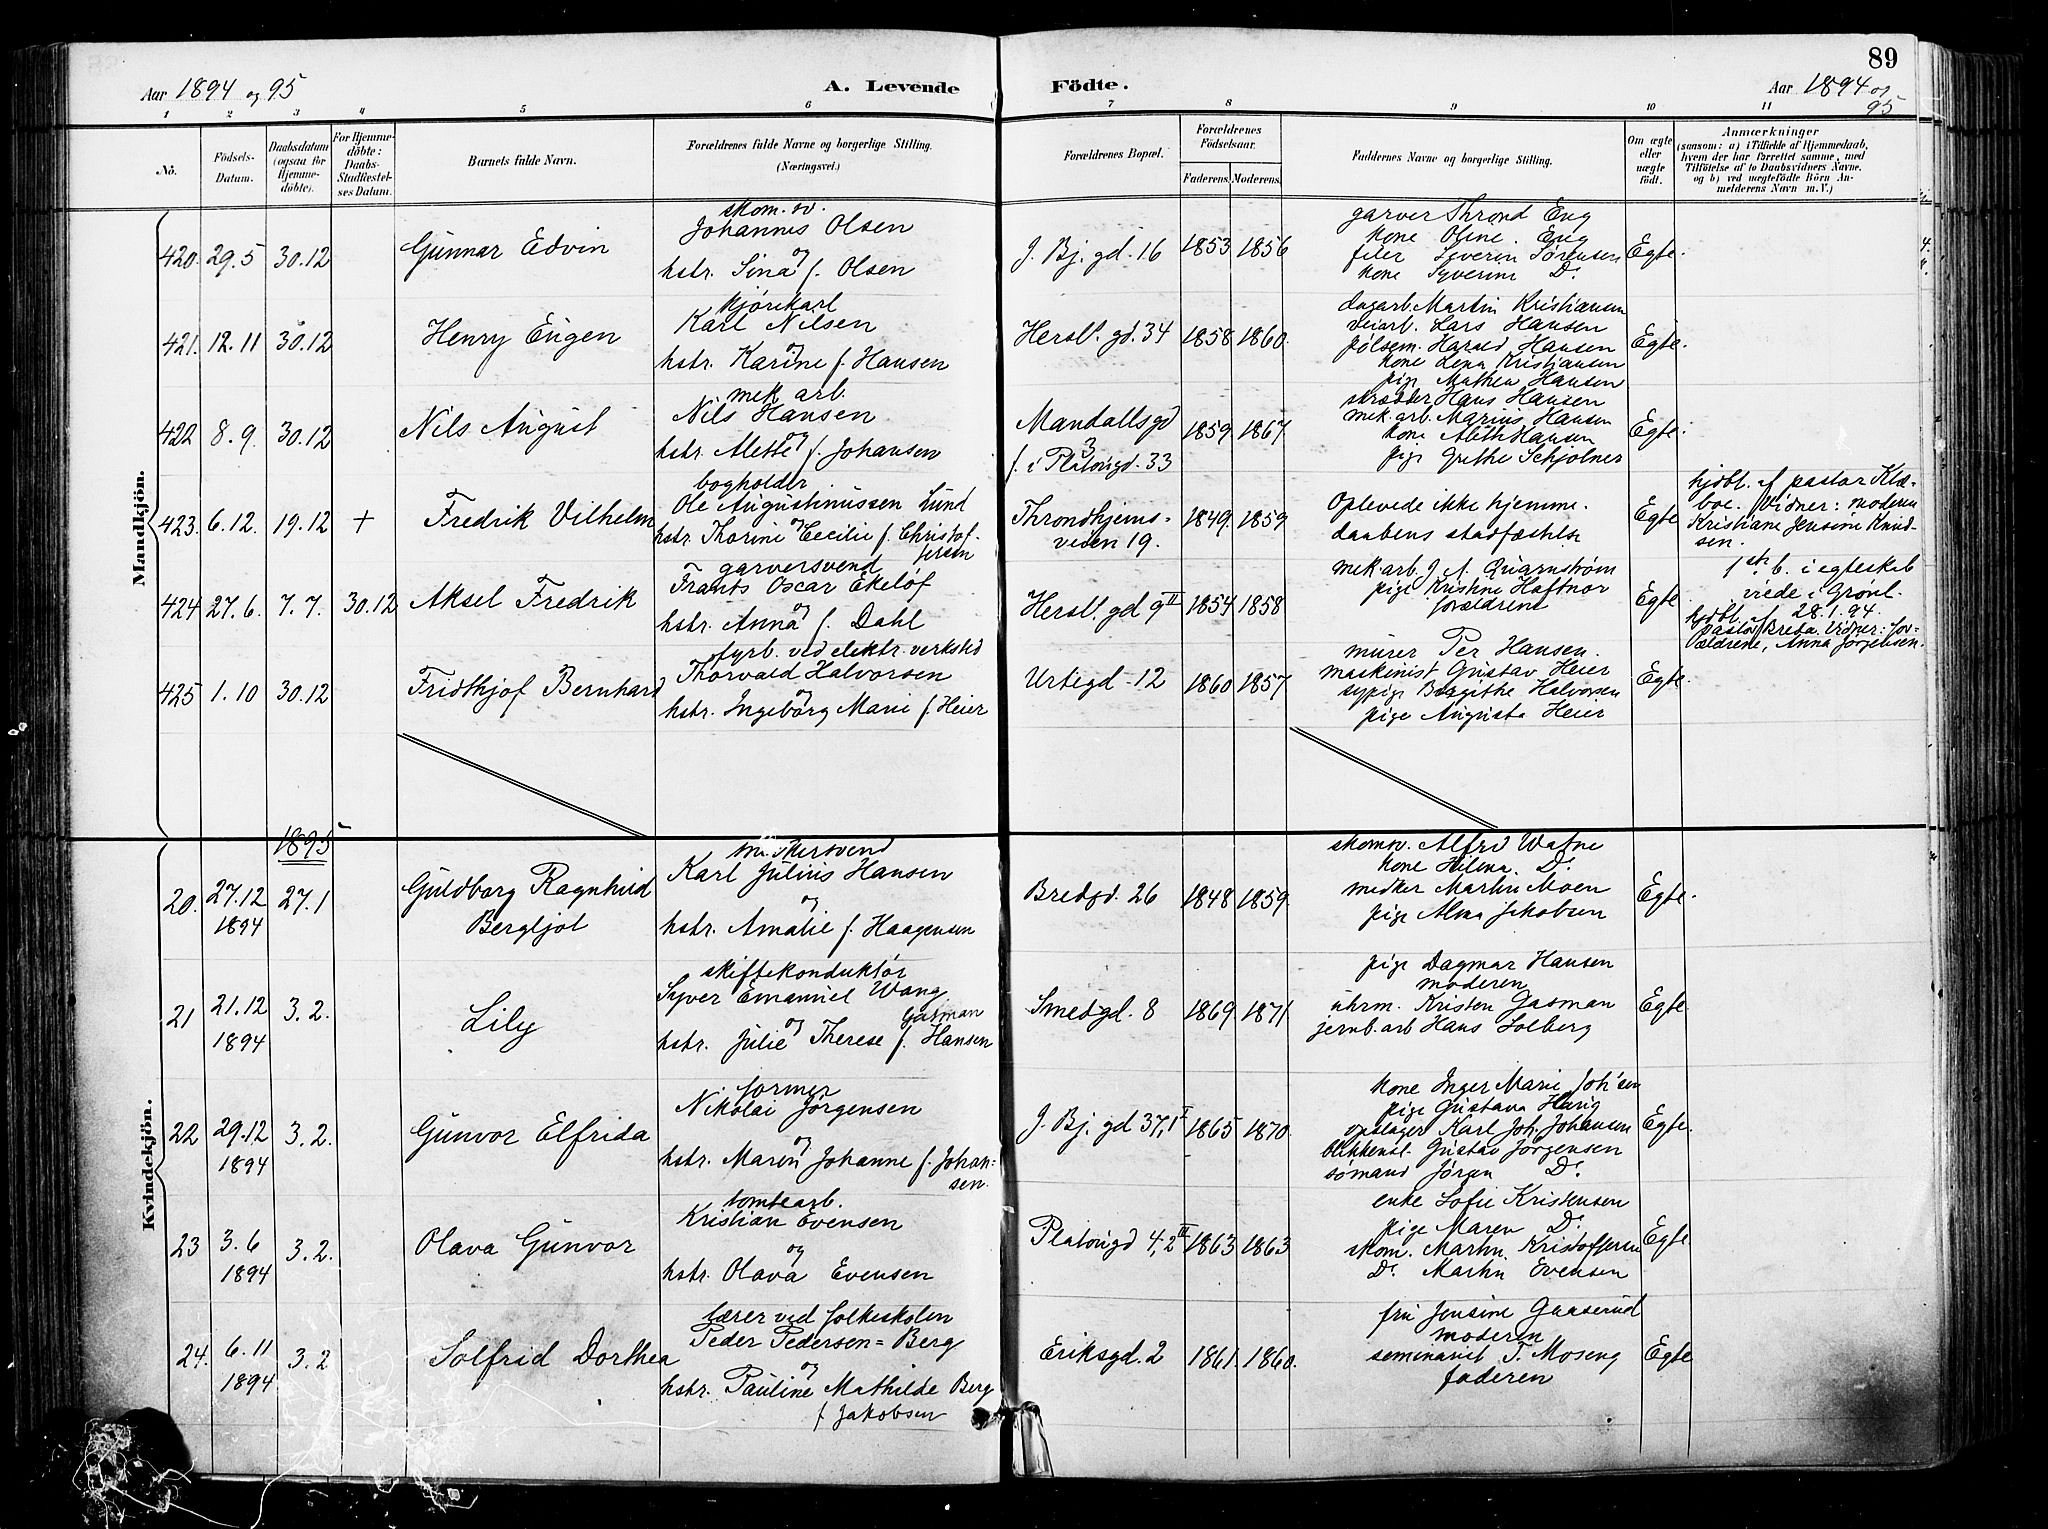 89
Aar 1894 og 95
A. Levende
Födte.
Aar 1894 og
95
1 2 3 4 5 6 7 8 9 10 11
No.
Födsels-
Datum.
Daabsdatum
(ogsaa for
Hjemme-
döbte).
For Hjemme-
döbte:
Daabs-
Stadfæstel-
ses Datum.
Barnets fulde Navn.
Forældrenes fulde Navne og borgerlige Stilling.
(Næringsvei.)
Forældrenes Bopæl.
Forældrenes
Födselsaar.
Faderens. Moderens.
Faddernes Navne og borgerlige Stilling.
Om ægte
eller
uægte
födt.
Anmærkninger
(saasom: a) i Tilfælde af Hjemmedaab,
hvem der har forrettet samme, med
Tilföielse af to Daabsvidners Navne.
og b) ved uægtefödte Börn An-
melderens Navn m.V.)
Mandkjön.
420. 29.5 30.12
Gunnar Edvin
skom. sv.
Johannes Olsen
og
hstr. Sina f. Olsen
J. Bj. gd. 16
1853 1856
garver Thrond Eng
kone Oline Eng
filer Severin Sørensen
kone Syverine Do
Egte.
421. 12.11 30.12
Henry Eugen
kjørekarl
Karl Nilsen
og
hstr. Karine f. Hansen
Hersl. gd. 34
1858 1860.
dagarb. Martin Kristiansen
veiarb. Lars Hansen
pølsem. Harald Hansen
kone Lena Kristiansen
pige Mathea Hansen
Egte.
422 8.9. 30.12
Nils August
mek arb.
Nils Hansen
og
hstr. Alette f. Johansen
Mandallsgd
3
f. i Platougd. 33
1859 1867
skrædder Hans Hansen
mek. arb. Marius Hansen
kone Aleth Hansen
pige Grethe Schjølner
Egte.
423. 6.12. 19.12 +
Fredrik Vilhelm
bogholder
Ole Augustinussen Lund
og
hstr. Thorine Cecilie f. Christof-
fersen
Throndhjems-
veien 19.
1849. 1859.
Oplevede ikke hjemme-
daabens stadfæstelse
Egte
hjdbt. af pastor Klæ-
boe. Vidner: moderen
Kristiane Jensine Knud-
sen.
424 27.6. 7.7. 30.12
Aksel Fredrik
garversvend
Frants Oscar Ekeløf
og
hstr. Anna f. Dahl
Hersl. gd 9 II
1854 1858
mek. arb. J. A. Quarnstrøm
pige Kristine Haftnor
forældrene
Egte
1ste b. i egteskab
viede i Grønl.
28.1.94.
hjdbt. af
pastor Breba. Vidner: For-
ældrene, Anna Jørgensen.
425 1.10 30.12
Fridthjof Bernhard
fyrb. ved elektr. verksted
Thorvald Halvorsen
og
hstr. Ingeborg Marie f. Heier
Urtegd. 12
1860 1857
murer Per Hansen.
maskinist Gustav Heier
sypige Birgithe Halvorsen
pige Augusta Heier
Egte.
Kvindekjön.
1895
20. 27.12
1894
27.1
Guldborg Ragnhild
Bergljot
Karl Julius Hansen
og
hstr. Amalie f. Haagensen
Bredgd. 26
1848 1859.
skom. Alfred Watne
kone Hilma. Do
Martin Moen
pige Alma Jakobsen
Egte.
21 21.12
1894
3.2.
Lily
skiftekonduktør
Syver Emanuel Wang
og Gasman
hstr. Julie Therese f. Hansen
Smedgd. 8
1869 1871
pige Dagmar Hansen
moderen
uhrm. Kristen Gasman
jernb. arb Hans Solberg
Egte.
22 29.12
1894
3.2.
Gunvor Elfrida
former
Nikolai Jörgensen
og
hstr. Maren Johanne f. Johan-
sen.
J. Bj. gd 37,1 I
1865 1870.
kone Inger Marie Joh'sen
pige Gustava Harig
opslager Karl Joh. Johansen
blikkensl. Gustav Jørgensen
sømand Jørgen Do
Egte.
23 3.6
1894
3.2.
Olava Gunvor
tomtearb.
Kristian Evensen
og
hstr. Olava Evensen
Platougd 4,2 II
1863 1863
enke Sofie Kristensen
pige Maren Do
skom. Martin Kristoffersen
Do. Martin Evensen
Egte
24. 6.11
1894
3.2
Solfrid Dorthea
lærer ved folkeskolen
Peder Pedersen=Berg
og
hstr. Pauline Mathilde Berg
f. Jakobsen
Eriksgd. 2
1861. 1860.
fru Jensine Gaaserud
moderen
seminarist T. Moseng
faderen
Egte